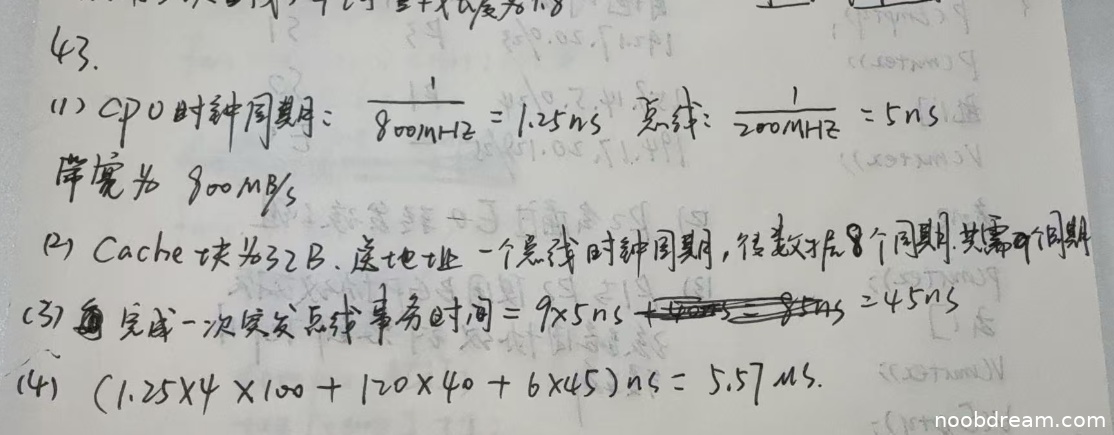 43.
(1) CPU时钟周期: 1/800MHZ = 1.25ns 总线: 1/200MHZ = 5ns
带宽为 800MB/s
(2) Cache块为32B、送地址一个总线时钟周期,传数据8个周期.共需9个周期
(3) 完成一次突发总线事务时间 = 9×5ns = 45ns
(4) (1.25×4×100 + 120×40 + 6×45)ns = 5.57μs.
noobdream.com